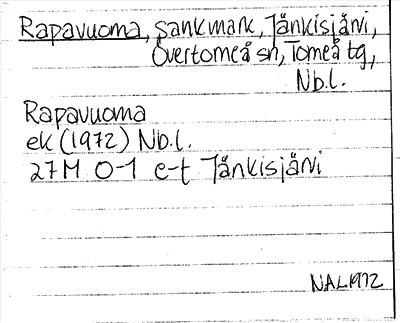 Rapavuoma, sankmark, Jånkisjåivi,
Övertorneå sn, Torneå tg,
Nb.l.
Rapavuoma
ek (1972) Nb.l.
27M 0-1 e-f Jånkisjåivi
NAL1972